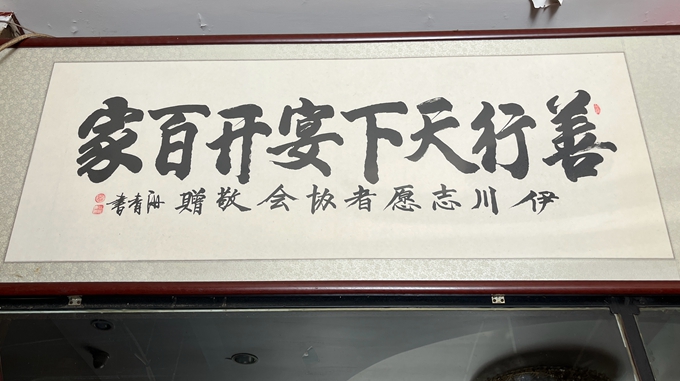 善行天下宴开百家
伊川志愿者协会敬赠
青书